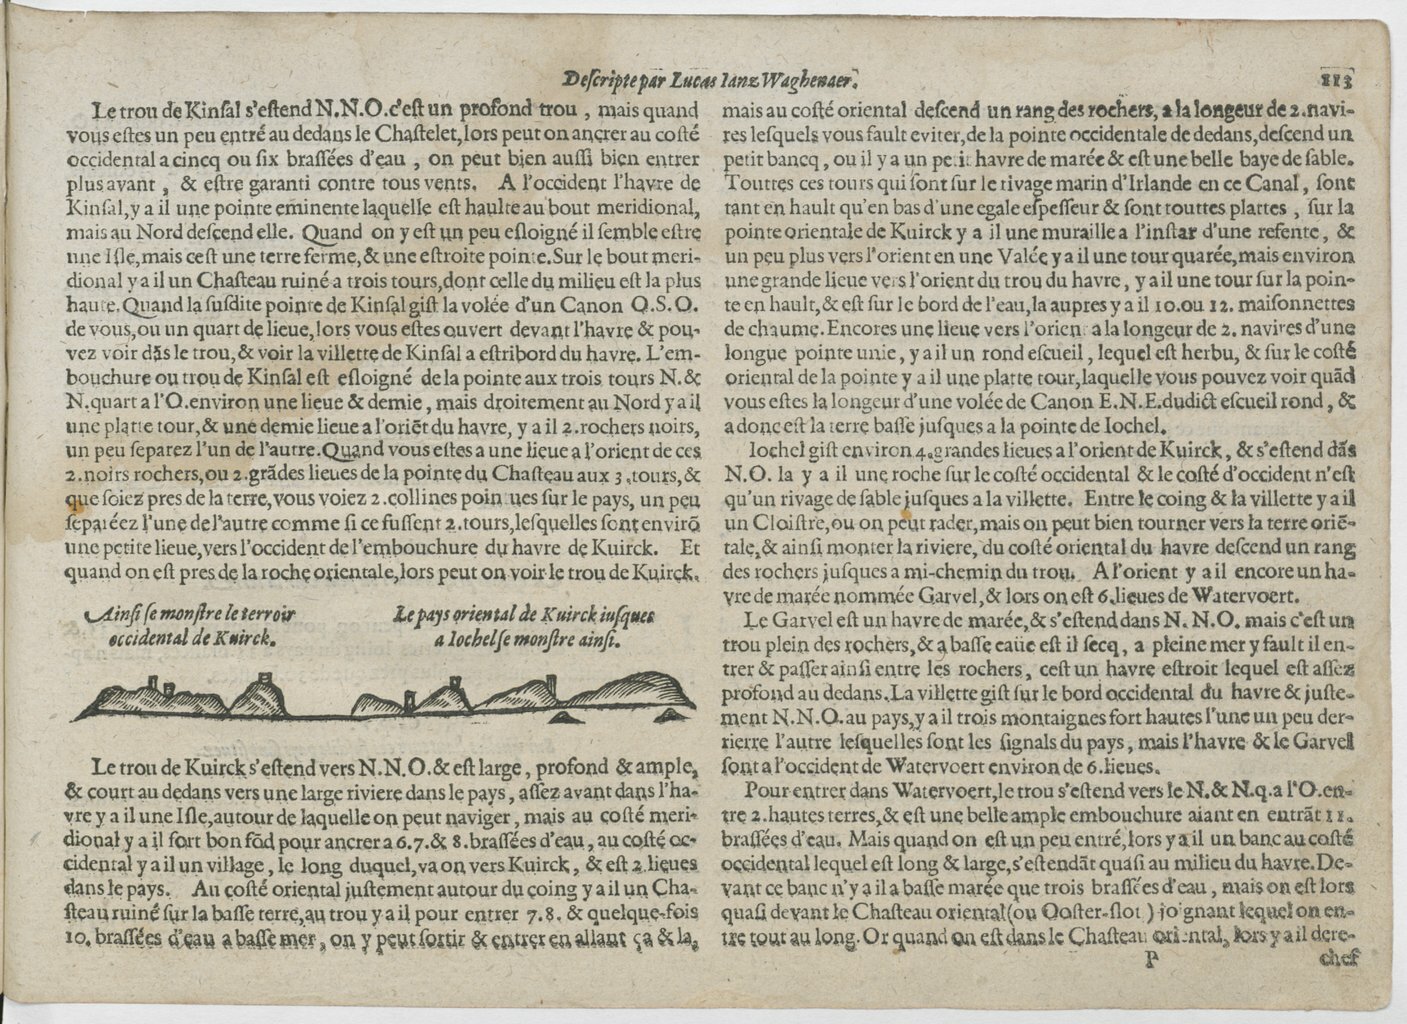 Descripte par Lucas Ianz Waghenaer.
113
Le trou de Kinsal s'estend N.N.O. c'est un profond trou , mais quand
vous estes un peu entré au dedans le Chastelet, lors peut on ancrer au costé
occidental a cincq ou six brassées d'eau , on peut bien aussi bien entrer
plus avant , & estre garanti contre tous vents. A l'occident l'havre de
Kinsal, y a il une pointe eminente laquelle est haulte au bout meridional,
mais au Nord descend elle. Quand on y est un peu esloigné il semble estre
une Isle, mais cest une terre ferme, & une estroite pointe. Sur le bout meri-
dional y a il un Chasteau ruiné a trois tours, dont celle du milieu est la plus
haute. Quand la susdite pointe de Kinsal gist la volée d'un Canon O.S.O.
de vous, ou un quart de lieue, lors vous estes ouvert devant l'havre & pou-
vez voir dãs le trou, & voir la villette de Kinsal a estribord du havre. L'em-
bouchure ou trou de Kinsal est esloigné de la pointe aux trois tours N. &
N. quart a l'O. environ une lieue & demie , mais droitement au Nord y a il
une platte tour, & une demie lieue a l'oriẽt du havre, y a il 2. rochers noirs,
un peu separez l'un de l'autre. Quand vous estes a une lieue a l'orient de ces
2. noirs rochers, ou 2. grãdes lieues de la pointe du Chasteau aux 3. tours, &
que soiez pres de la terre, vous voiez 2. collines pointues sur le pays, un peu
separéez l'une de l'autre comme si ce fussent 2. tours, lesquelles sont envirõ
une petite lieue, vers l'occident de l'embouchure du havre de Kuirck. Et
quand on est pres de la roche orientale, lors peut on voir le trou de Kuirck.
Ainsi se monstre le terroir
occidental de Kuirck.
Le pays oriental de Kuirck iusques
a Iochel se monstre ainsi.
Le trou de Kuirck s'estend vers N.N.O. & est large , profond & ample,
& court au dedans vers une large riviere dans le pays , assez avant dans l'ha-
vre y a il une Isle, autour de laquelle on peut naviger , mais au costé meri-
dional y a il fort bon fõd pour ancrer a 6. 7. & 8. brassées d'eau, au costé oc-
cidental y a il un village , le long duquel, va on vers Kuirck , & est 2. lieues
dans le pays. Au costé oriental justement autour du coing y a il un Cha-
steau ruiné sur la basse terre, au trou y a il pour entrer 7. 8. & quelque-fois
10. brassées d'eau a basse mer, on y peut sortir & entrer en allant ça & la,
mais au costé oriental descend un rang des rochers, a la longeur de 2. navi-
res lesquels vous fault eviter, de la pointe occidentale de dedans, descend un
petit bancq , ou il y a un petit havre de marée & est une belle baye de sable.
Touttes ces tours qui sont sur le rivage marin d'Irlande en ce Canal , sont
tant en hault qu'en bas d'une egale espesseur & sont touttes plattes , sur la
pointe orientale de Kuirck y a il une muraille a l'instar d'une refente , &
un peu plus vers l'orient en une Valée y a il une tour quarée, mais environ
une grande lieue vers l'orient du trou du havre , y a il une tour sur la poin-
te en hault, & est sur le bord de l'eau, la aupres y a il 10. ou 12. maisonnettes
de chaume. Encores une lieue vers l'orient a la longeur de 2. navires d'une
longue pointe unie , y a il un rond escueil , lequel est herbu, & sur le costé
oriental de la pointe y a il une platte tour, laquelle vous pouvez voir quãd
vous estes la longeur d'une volée de Canon E.N.E. dudict escueil rond , &
adonc est la terre basse jusques a la pointe de Iochel.
Iochel gist environ 4. grandes lieues a l'orient de Kuirck , & s'estend dãs
N.O. la y a il une roche sur le costé occidental & le costé d'occident n'est
qu'un rivage de sable jusques a la villette. Entre le coing & la villette y a il
un Cloistre, ou on peut rader, mais on peut bien tourner vers la terre oriẽ-
tale, & ainsi monter la riviere, du costé oriental du havre descend un rang
des rochers jusques a mi-chemin du trou. A l'orient y a il encore un ha-
vre de marée nommée Garvel, & lors on est 6. lieues de Watervoert.
Le Garvel est un havre de marée, & s'estend dans N. N. O. mais c'est un
trou plein des rochers, & a basse eaüe est il secq , a pleine mer y fault il en-
trer & passer ainsi entre les rochers, cest un havre estroit lequel est assez
profond au dedans. La villette gist sur le bord occidental du havre & juste-
ment N.N.O. au pays, y a il trois montaignes fort hautes l'une un peu der-
rierre l'autre lesquelles sont les signals du pays , mais l'havre & le Garvel
sont a l'occident de Watervoert environ de 6. lieues.
Pour entrer dans Watervoert, le trou s'estend vers le N. & N.q. a l'O. en-
tre 2. hautes terres, & est une belle ample embouchure aiant en entrãt 11.
brassées d'eau. Mais quand on est un peu entré, lors y a il un banc au costé
occidental lequel est long & large, s'estendãt quasi au milieu du havre. De-
vant ce banc n'y a il a basse marée que trois brassées d'eau , mais on est lors
quasi devant le Chasteau oriental (ou Ooster-slot ) joignant lequel on en-
tre tout au long. Or quand on est dans le Chasteau oriental, lors y a il dere-
P
chef